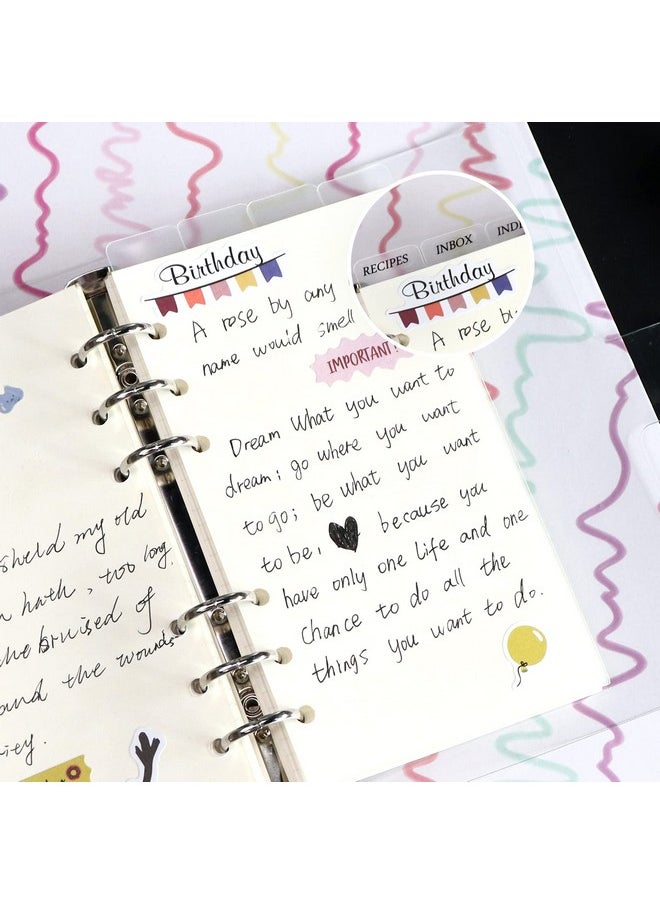 my old
hath, too long,
bruised of
the wounds
Birthday
A rose by any
name would smell
IMPORTANT!
Dream What you want to
dream; go where you want
to go; be what you want
to be, because you
have only one life and one
chance to do all the
things you want to do.
RECIPES INBOX
Birthday
A rose